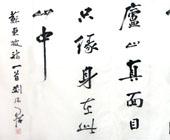 廬山真面目
只緣身在此
山中
蘇東坡詩一首